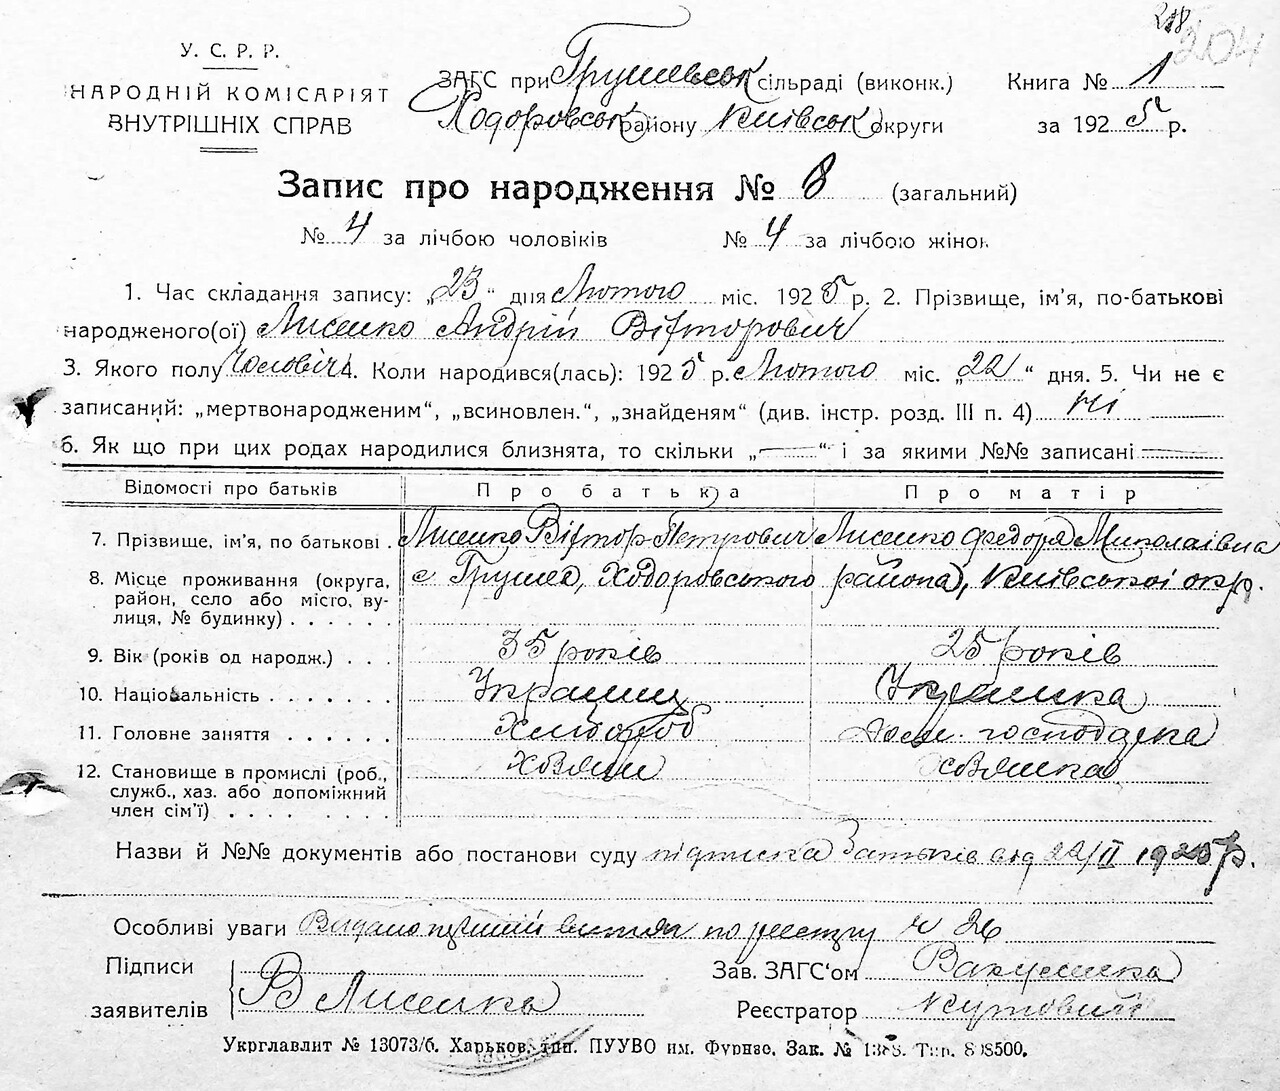 218
204
У. С. Р. Р.
НАРОДНІЙ КОМІСАРІЯТ
ВНУТРІШНІХ СПРАВ
ЗАГС при Грушевськ сільраді (виконк.)
Ходоровськ району Київськ округи
Книга № 1
за 1925 р.
Запис про народження № 8 (загальний)
№ 4 за лічбою чоловіків № 4 за лічбою жінок
1. Час складання запису: „23" дня Лютого міс. 1925 р. 2. Прізвище, ім'я, по-батькові
народженого(ої) Лисенко Андрій Вікторович
3. Якого полу Чоловіч 4. Коли народився(лась): 1925 р. Лютого міс. „22" дня. 5. Чи не є
записаний: „мертвонародженим", „всиновлен.", „знайденям" (див. інстр. розд. III п. 4) Ні
6. Як що при цих родах народилися близнята, то скільки „—" і за якими №№ записані
Відомості про батьків Про батька Про матір
7. Прізвище, ім'я, по батькові . Лисенко Віктор Петрович Лисенко Федора Миколаївна
8. Місце проживання (округа, с Грушев, Ходоровського района, Київської окр.
район, село або місто, ву-
лиця, № будинку) . . . . . .
9. Вік (років од народж.) . . . 35 років 25 років
10. Національність . . . . . . . Українец Українка
11. Головне заняття . . . . . . Хлібороб Дом. господарка
12. Становище в промислі (роб., Хазяїн Хазяйка
служб., хаз. або допоміжний
член сім'ї) . . . . . . . .
Назви й №№ документів або постанови суду підписка батьків від 22/II 1925 р.
Особливі уваги Видано перший витяг по реєстру № 26
Підписи
заявителів
В Лисенко
Зав. ЗАГС'ом Вакуленко
Реєстратор
Укрглавлит № 13073/б. Харьков, тип. ПУУВО им. Фрунзе. Зак. № 1388. Тир. 808500.